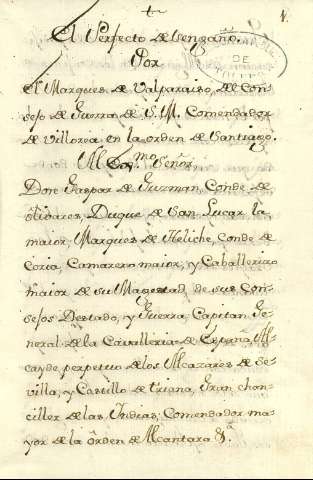 1.
El Perfecto desengaño.
Por
El Marques de Valparaiso, del Con-
sejo de Guerra de S. M. Comendador
de Villorea en la orden de Santiago.
Al Exᵐᵒ Señor
Don Gaspar de Guzman, Conde de
olivares, Duque de San Lucar la
maior, Marques de Heliche, Conde de
Coria, Camarero maior, y Caballerizo
maior de su Magestad, de sus Con-
sejos Destado, y Guerra, Capitan Ge-
neral de la Cavalleria de España, Al-
cayde, perpetuo de los Alcazares de Se-
villa, y Castillo de triana, Gran chan-
ciller de las Indias, Comendador ma-
yor de la orden de Alcantara &.
DE